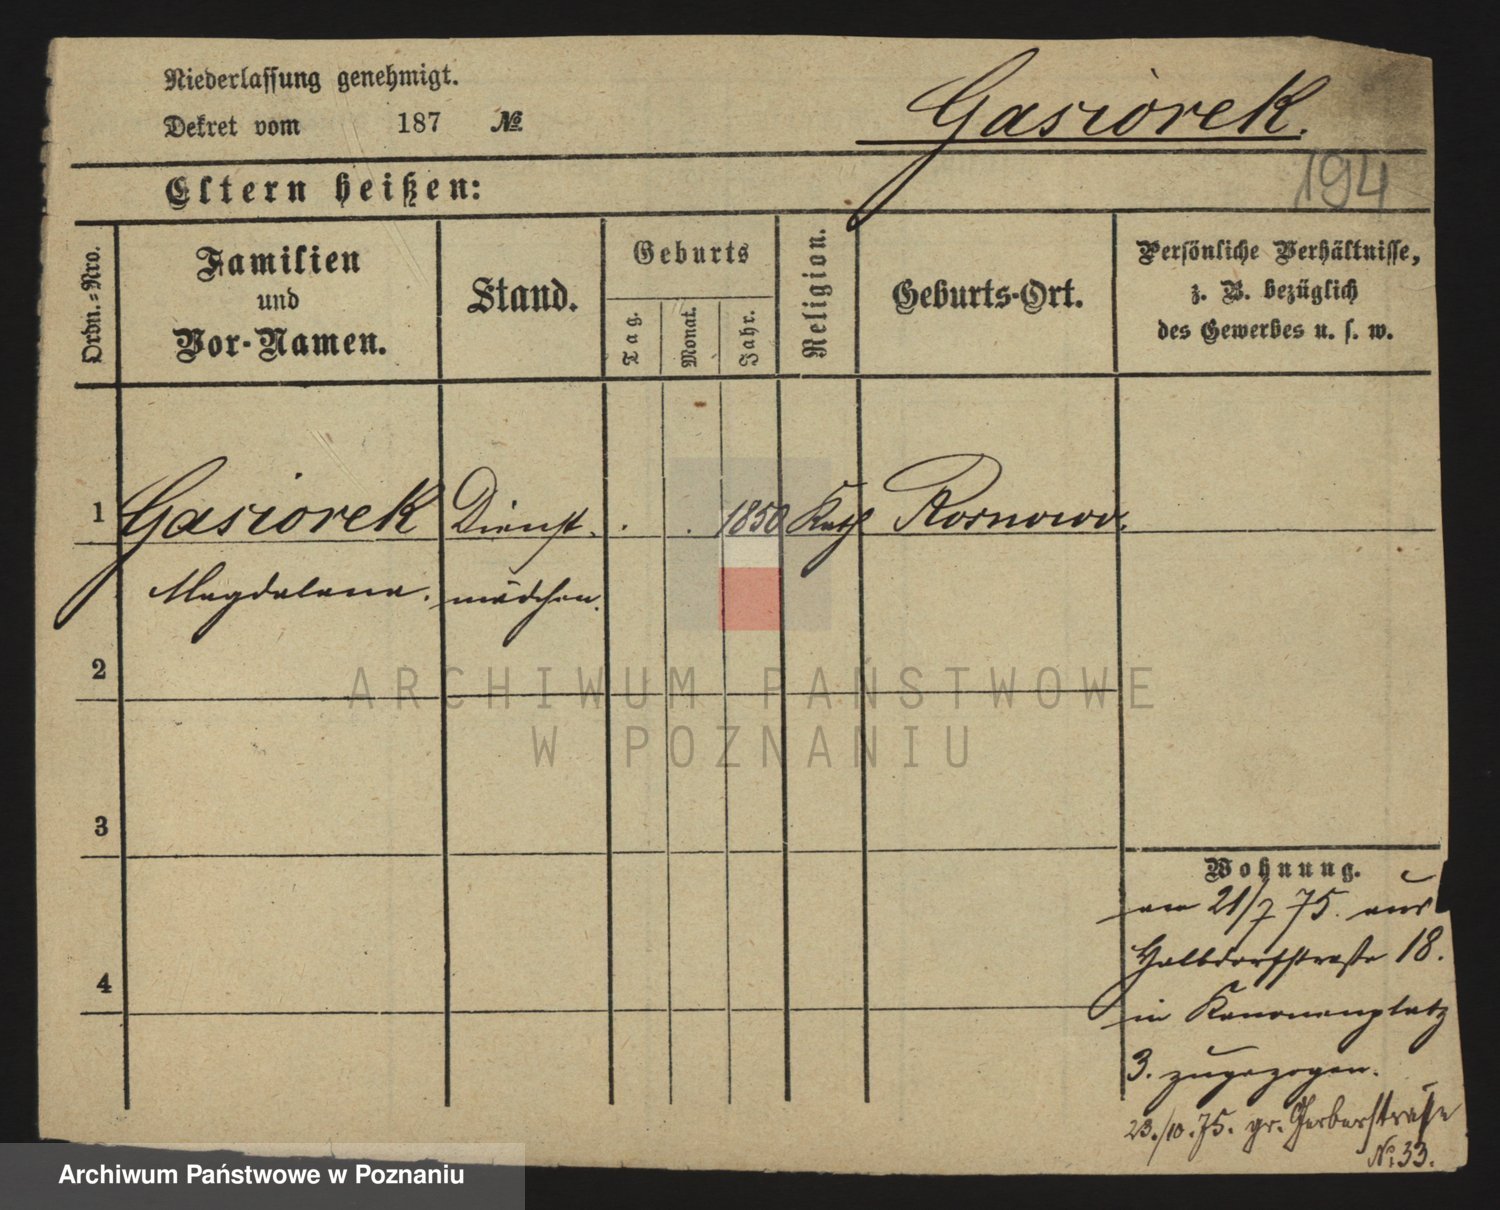 Niederlassung genehmigt.
Dekret vom 187 №
Gasiorek.
194
Eltern heißen:
Ordn.=Nro.
Familien
und
Vor-Namen.
Stand.
Geburts
Tag.
Monat.
Jahr.
Religion.
Geburts-Ort.
Persönliche Verhältnisse,
z. B. bezüglich
des Gewerbes u. s. w.
1 Gasiorek Dienst . . 1850 Kath Rosnowo.
Magdalena. mädchen.
2
ARCHIWUM PAŃSTWOWE
W POZNANIU
3
Wohnung.
am 21/7 75. aus
Halbdorfstraße 18.
4
in Kanonenplatz
3. zugezogen.
23./10.75. gr. Gerberstraße
No 33.
Archiwum Państwowe w Poznaniu